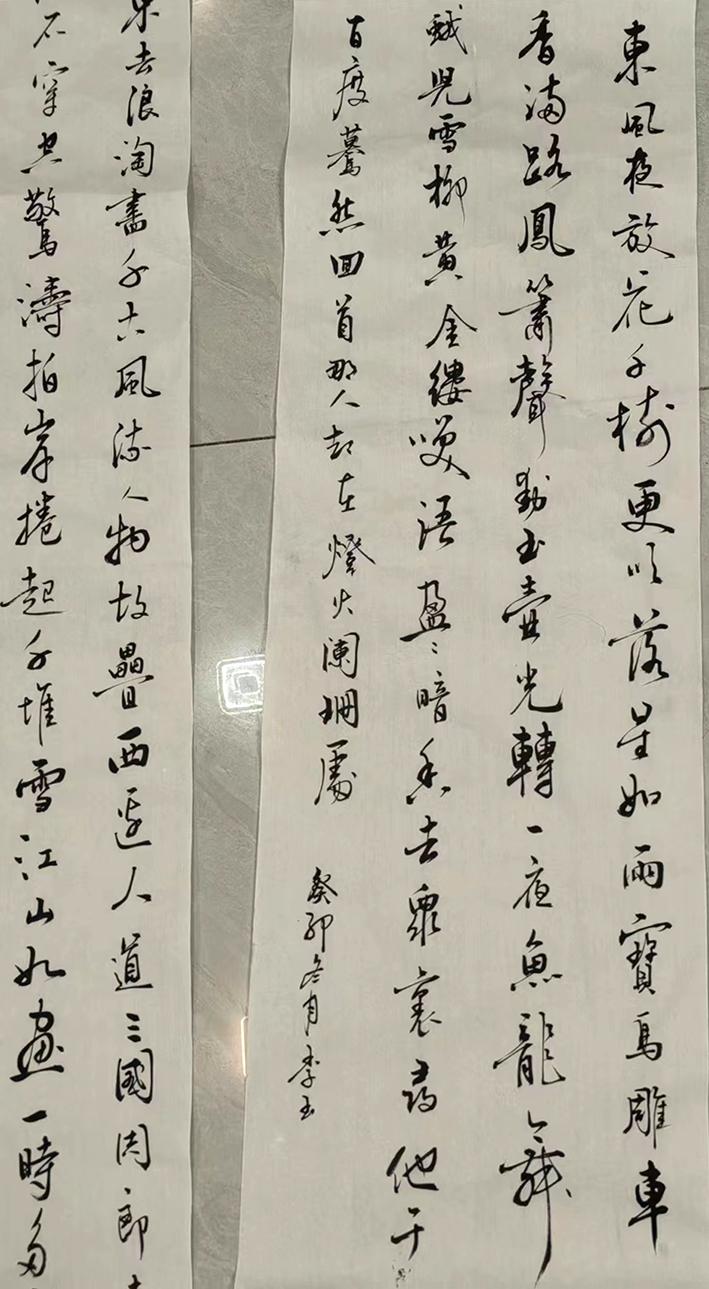 東風夜放花千樹更吹落星如雨寶馬雕車
香滿路鳳簫聲動玉壺光轉一夜魚龍舞
蛾兒雪柳黃金縷笑語盈〻暗香去衆裏尋他千
百度驀然回首那人却在燈火闌珊處
癸卯冬月李玉
東去浪淘盡千古風流人物故壘西邊人道三國周郎
石穿空驚濤拍岸捲起千堆雪江山如畫一時多